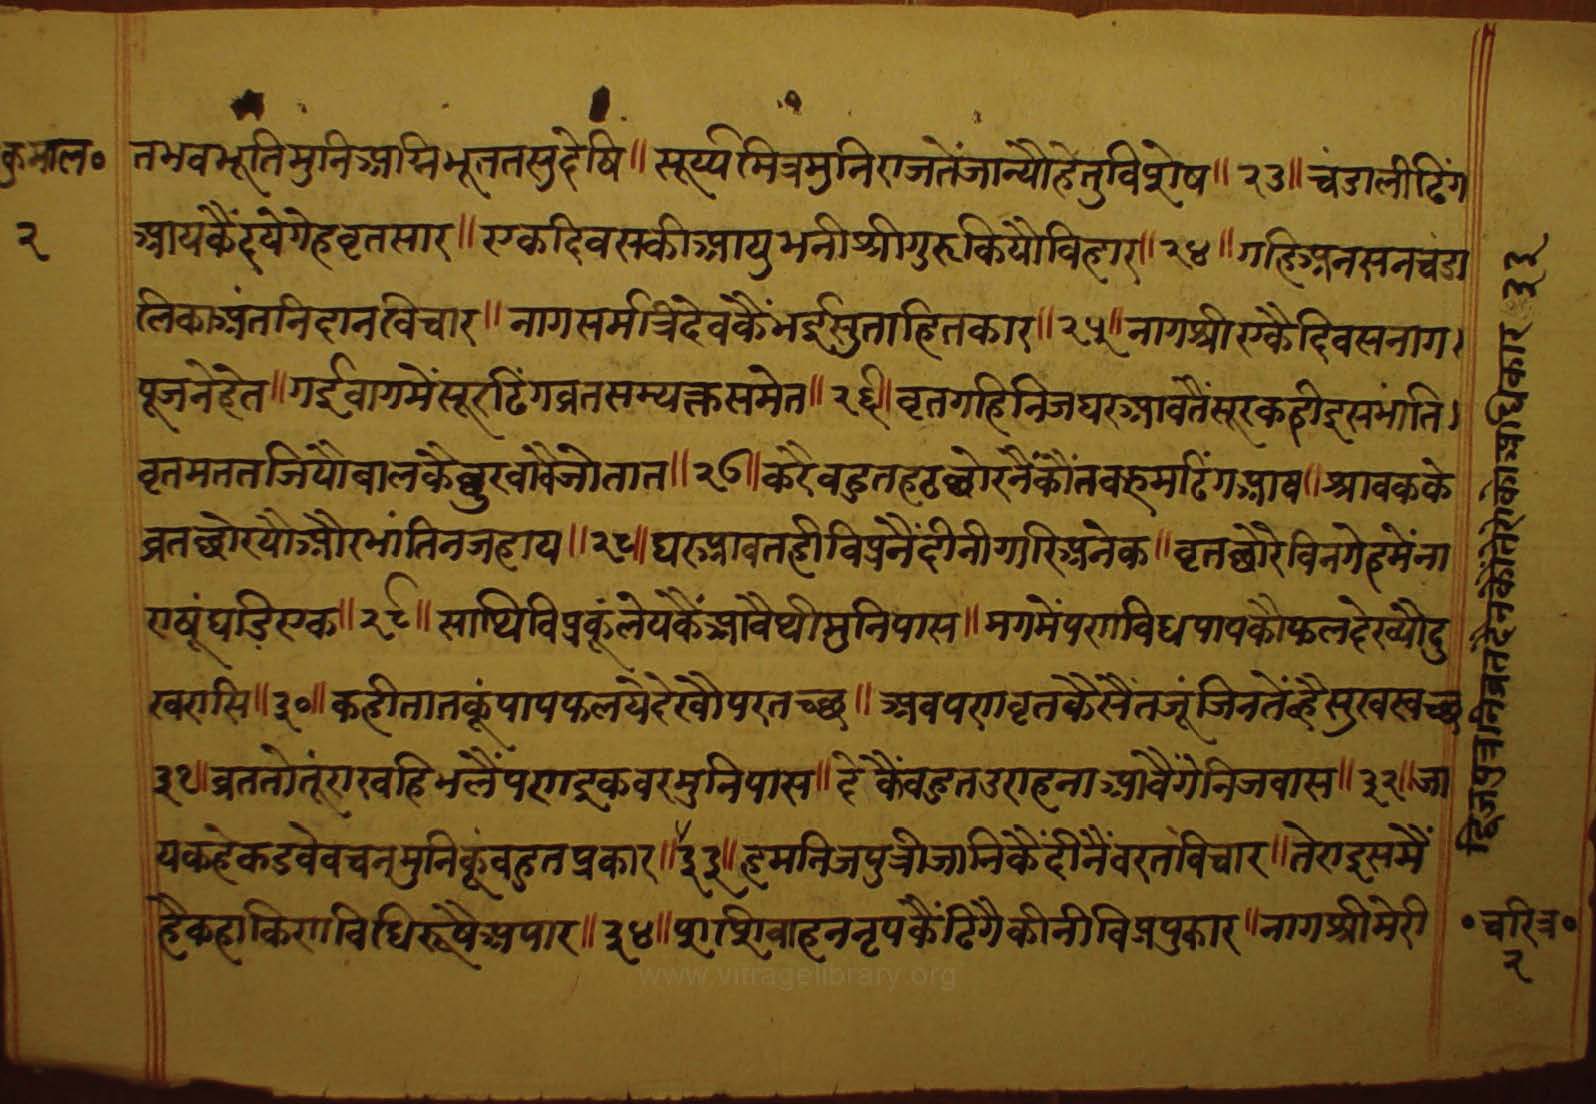 कुमाल०
२
तभवभूतिमुनिअग्निभूततसुदेषि॥ सूर्य्यमित्रमुनिराजतेंजान्यौहेतुविशेष॥ २३॥ चंडालीढिंग
आयकैंदयेगेहवृतसार॥ एकदिवसकीआयुभनीश्रीगुरुकियौविहार॥ २४॥ गहिअनसनचंडा
लिकाअंतनिदानविचार॥ नागसर्मात्रिदेवकैंभईसुताहितकार॥ २५॥ नागश्रीएकैदिवसनाग।
पूजनेहेत॥ गईवागमेंसूरढिंगव्रतसम्यक्तसमेत॥ २६॥ वृतगहिनिजघरआवतैंसूरकहीइसभांति।
वृतमततजियौबालकैछुरवावैजोतात॥ २७॥ करैवहुतहठछोरनैंकौंतवहमढिंगआव॥ श्रावकके
व्रतछोरयौऔरभांतिनजहाय॥ २८॥ घरआवतहीविप्रनैंदीनीगारिअनेक॥ वृतछोरैविनगेहमेंना
राषूंघड़िएक॥ २९॥ साथिविप्रकूंलेयकैंआवैथीमुनिपास॥ मगमेंपराविधपापकौफलदेख्यौदु
खरासि॥ ३०॥ कहीतातकूंपापफलयेदेखौपरतच्छ॥ अवपरावृतकैसैंतजूंजिनतेंव्हैसुखस्वच्छ
३१॥ व्रततोतूंराखहिभलैंपराइकवरमुनिपास॥ देकैंवहुतउराहनाआवैंगेनिजवास॥ ३२॥ जा
यकहेकडवेवचनमुनिकूंवहुतप्रकार॥ ३३॥ हमनिजपुत्रीजानिकैंदीनैंवरतविचार॥ तेराइसमैं
हैकहाकिराविधिरूपैअपार॥ ३४॥ शशिवाहननृपकैंढिंगैकीनीविप्रपुकार॥ नागश्रीमेरी
द्विजपुत्रानिव्रतदेनकौंतेरोकोअधिकार ३३
०चरित्र०
२
www.vitragelibrary.org